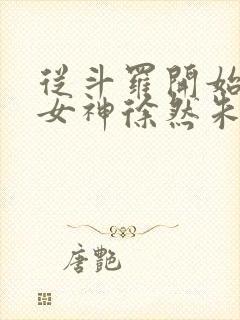 從斗羅開始
女神徐然朱
唐艷